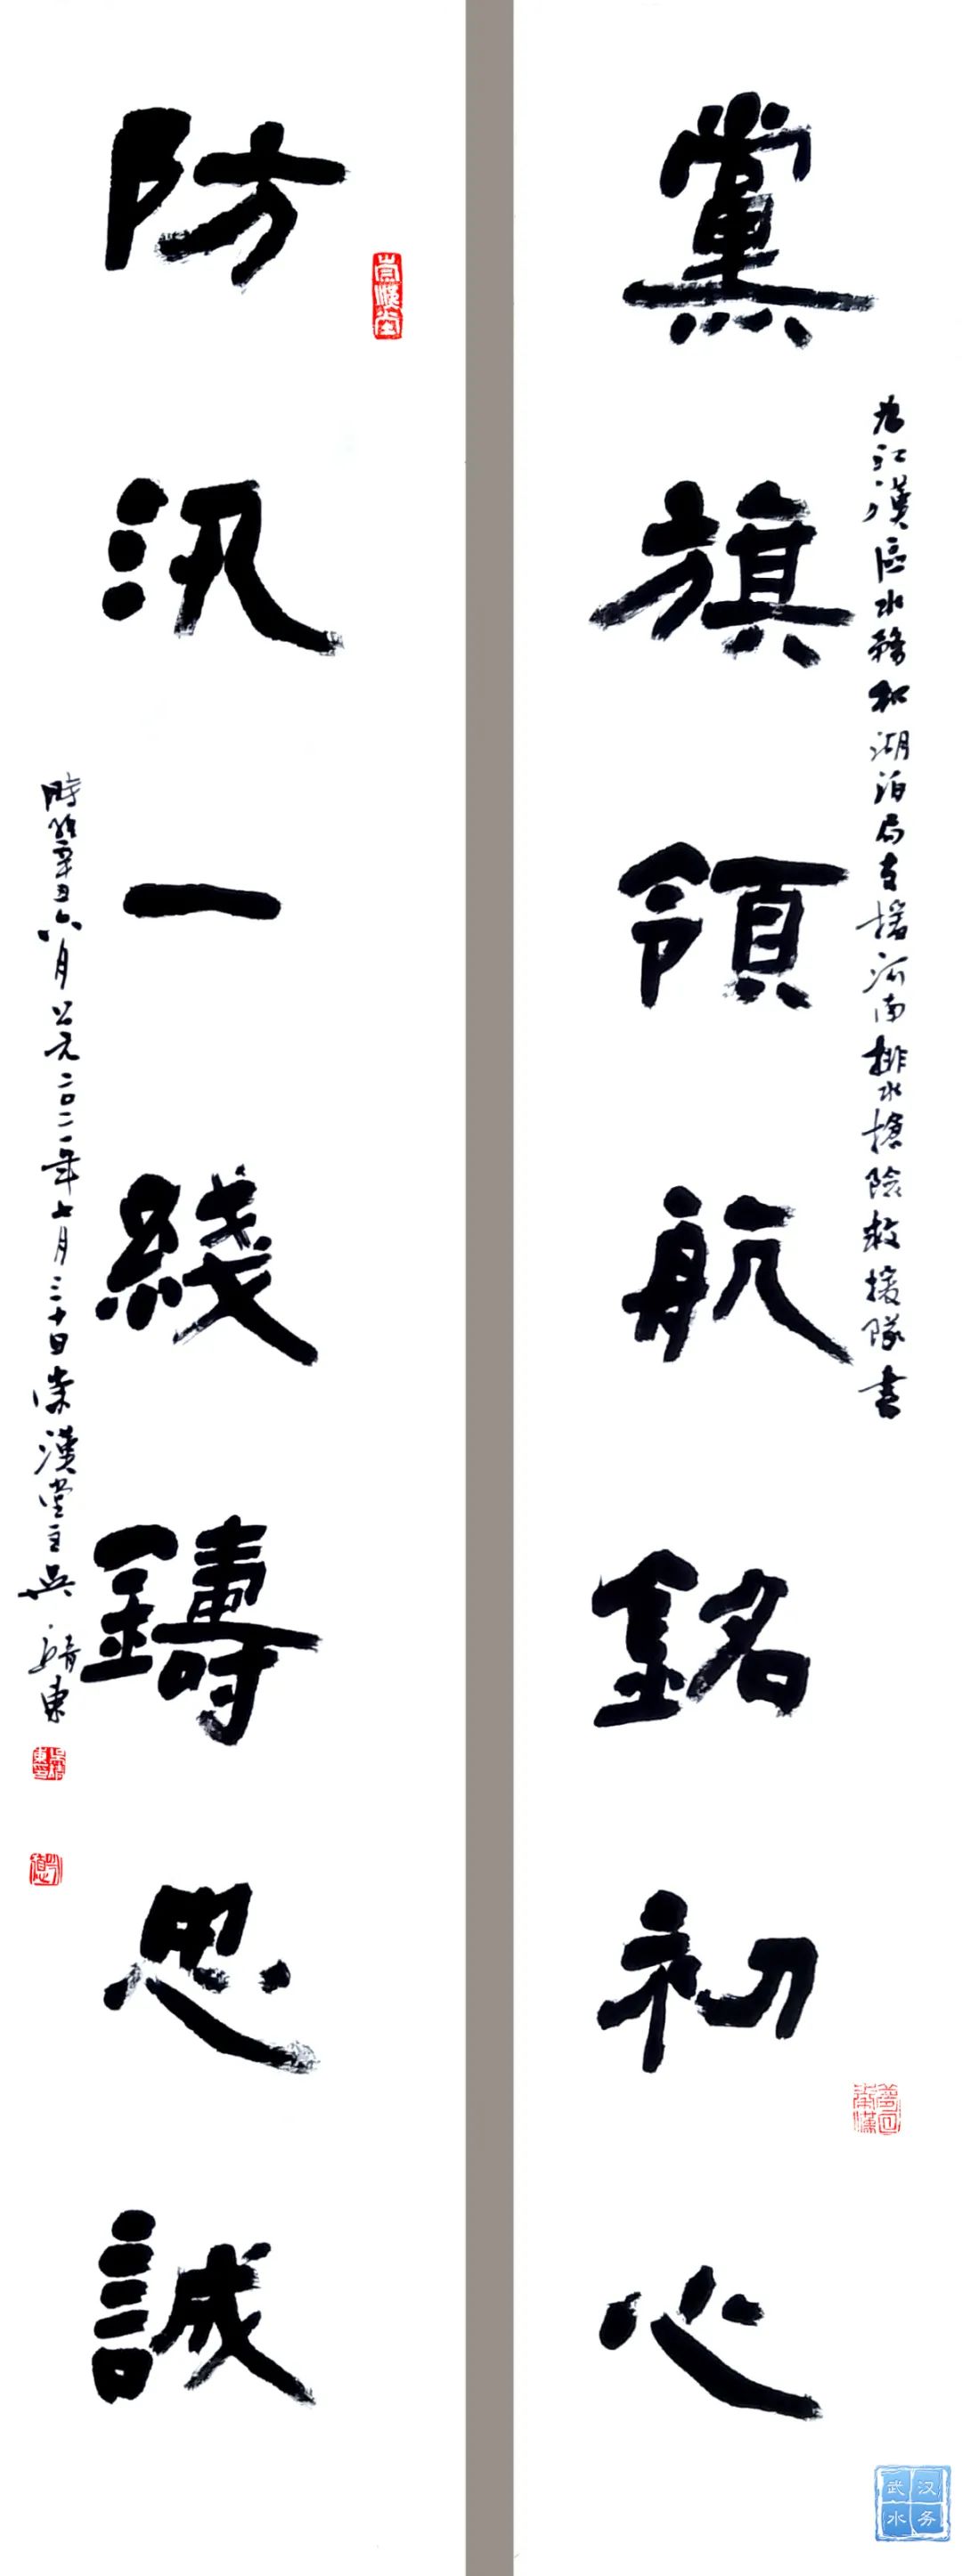 黨旗領航銘初心
为江漢區水務和湖泊局支援河南排水搶險救援隊書
防汛一綫鑄忠誠
時維辛丑六月公元二〇二一年七月三十日崇漢堂主吳靖東
崇漢堂
武汉
水务